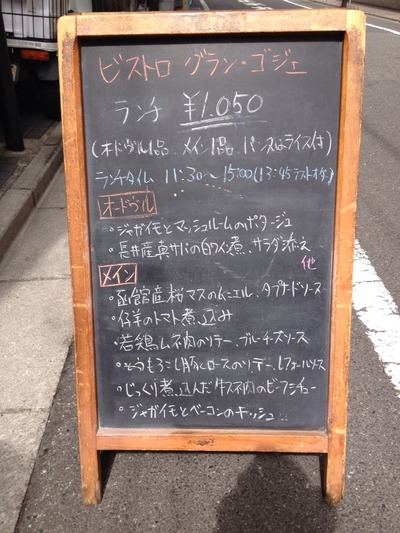 ビストロ グラン・ゴジェ
ランチ ¥1,050
(オードヴル1品、メイン1品 パン又はライス付)
ランチタイム 11:30〜15:00(13:45ラストオーダー)
オードヴル
・ジャガイモとマッシュルームのポタージュ
・長井産真サバの白ワイン煮、サラダ添え
他
メイン
・函館産桜マスのムニエル、タプナードソース
・仔羊のトマト煮込み
・若鶏ムネ肉のソテー、ブルーチーズソース
・とうもろこし豚ロースのソテー、レフォールソース
・じっくり煮込んだ牛スネ肉のビーフシチュー
・ジャガイモとベーコンのキッシュ